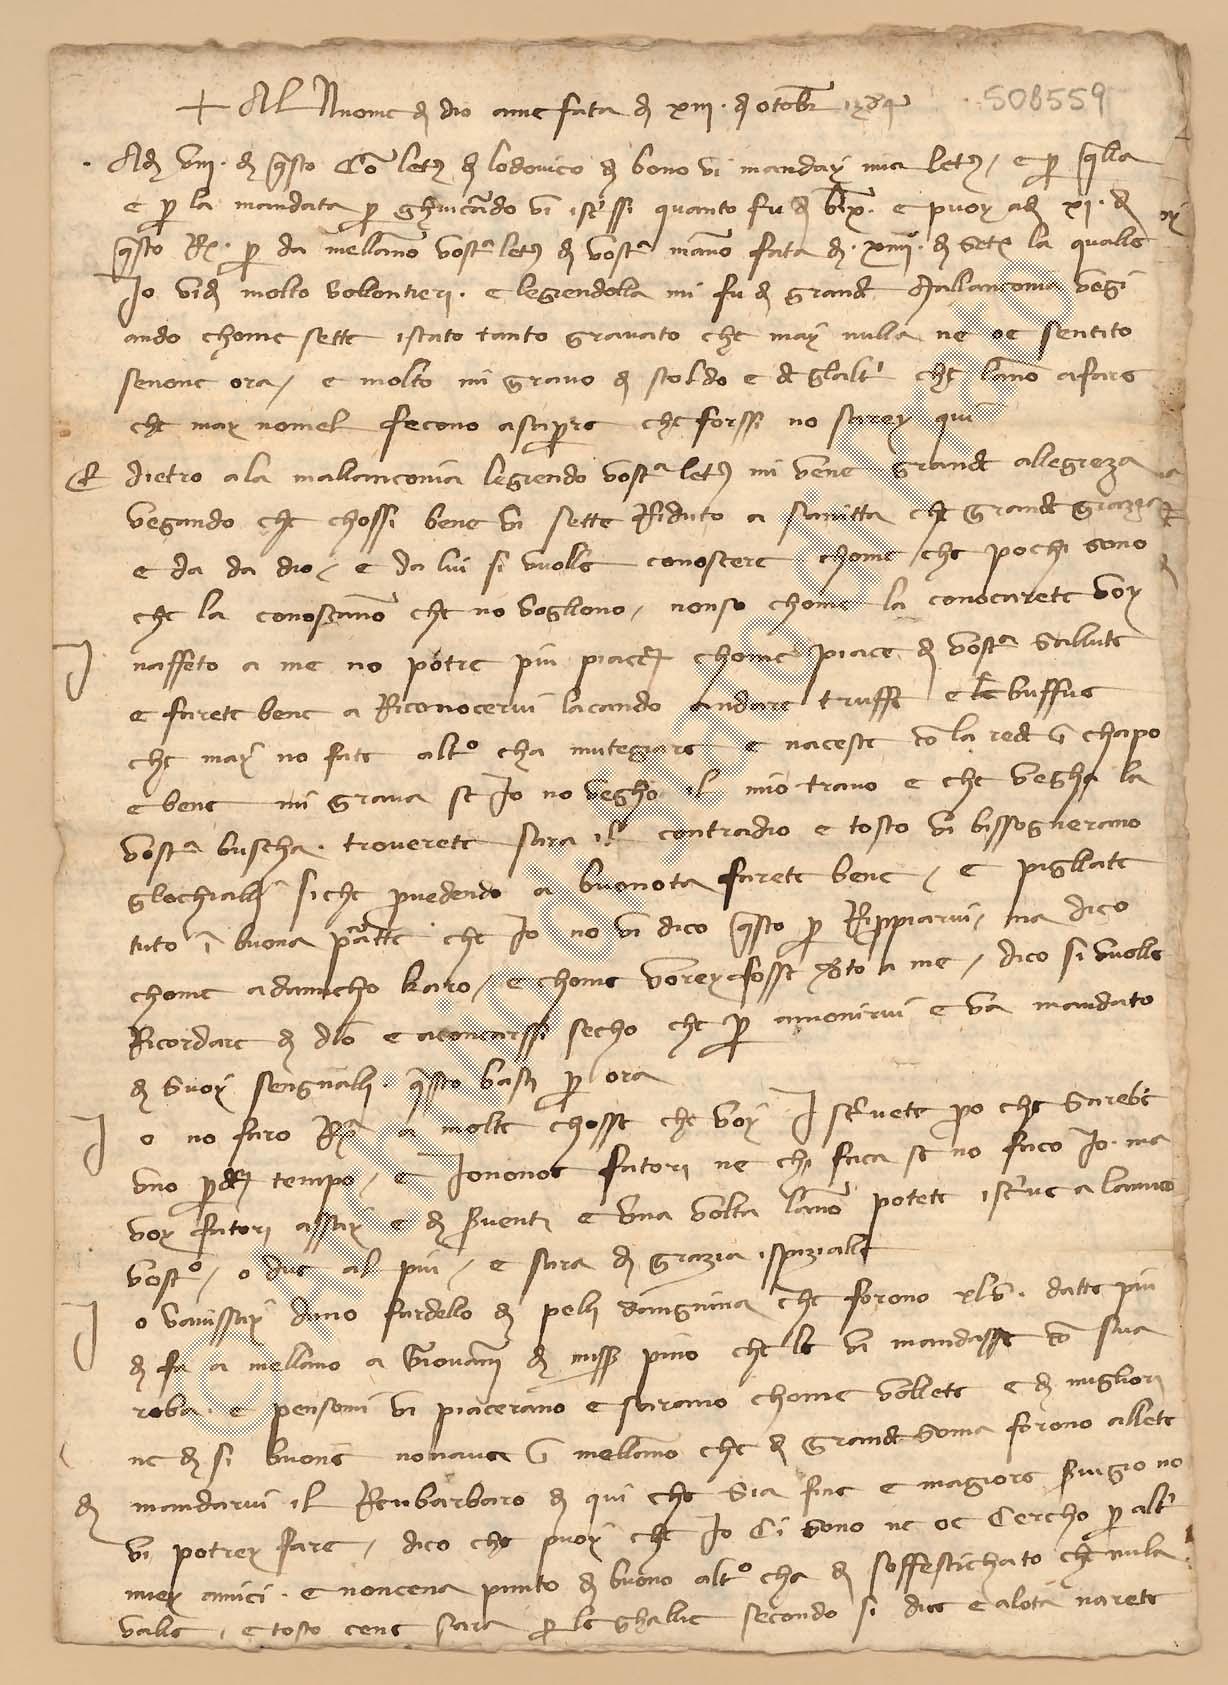 + Al Nuome di dio ame fata di xiii. di otobr 1384 508559
Adi viii. di questo Con letera di lodovico di bono vi manday mia letera, e per quella
e per la mandata per ghuicardo vi iscrissi quanto fu di bixo. e puoy adi xi. di
questo R. per da mellano vostra letera di vostra mano fata di. xiiii. di Setr la qualle
Io vidi molto vollontieri. e legiendolla mi fu di grande mallanconia vegi
ando chome sette istato tanto gravato che may nulla ne oe sentito
senone ora, e molto mi gravo di stoldo e de glaltri che lano afare
che may nomel fecono asapere che forssi no sarey qui
E dietro a la mallanconia legiendo vostra letera mi vene grande allegreza
vegando che chossi bene vi sette Riduto a sanitta che grande grazia
e da da dio, e da lui si vuolle conoscere chome che pochi sono
che la conoscano che no vogliono, nonso chome la conocarete voy
I naffeto a me no potre piu piacere chome piace di vostra sallute
e farete bene a Riconocervi lacando andare truffe e le buffue
che may no fate altro cha mutegiare e naceste con la rede in chapo
e bene mi grava se Io no vegho il mio travo e che vegha la
vostra buscha. troverete sara il contradio e tosto vi bissognerano
glochialli siche provedendo a buonota farete bene, e pigliate
tuto in buona parte che Io no vi dico questo per Rippiarvi, ma dico
chome adamicho karo, e chome vorey fosse deto a me, dico si vuolle
Ricordare di dio e aconcarssi secho che per amonirvi e va mandato
di suoy sengnalli. questo basti per ora
I o no faro Rx a molte chosse che voy I scrivete pero che sarebe
uno perdere tempo, e Iononoe fatori ne chi faca se no faco Io. ma
voy fatori assay e di serventi e una volta lano potete iscrive a lamico
vostro, o due al piu, e sara di grazia ispiziale
I o vavissay duno fardello di pelli dangnina che forono xlv. datte piu
di fa a mellano a Giovani di misser pino che le vi mandasse con sua
roba. e pensomi vi piacerano e sarano chome vollete e di migliori
ne di si buone nonavea in mellano che di grande soma forono allete
di mandarvi il Reubarbaro di qui che sia fine e magiore servigio no
vi potrey fare, dico che puoy che Io Ci sono ne oe Cercho per altri
miey amici. e noncena punto di buono altro cha di soffestichato che nula
valle, e tosto cene sara per le ghallie secondo si dice e alota narete